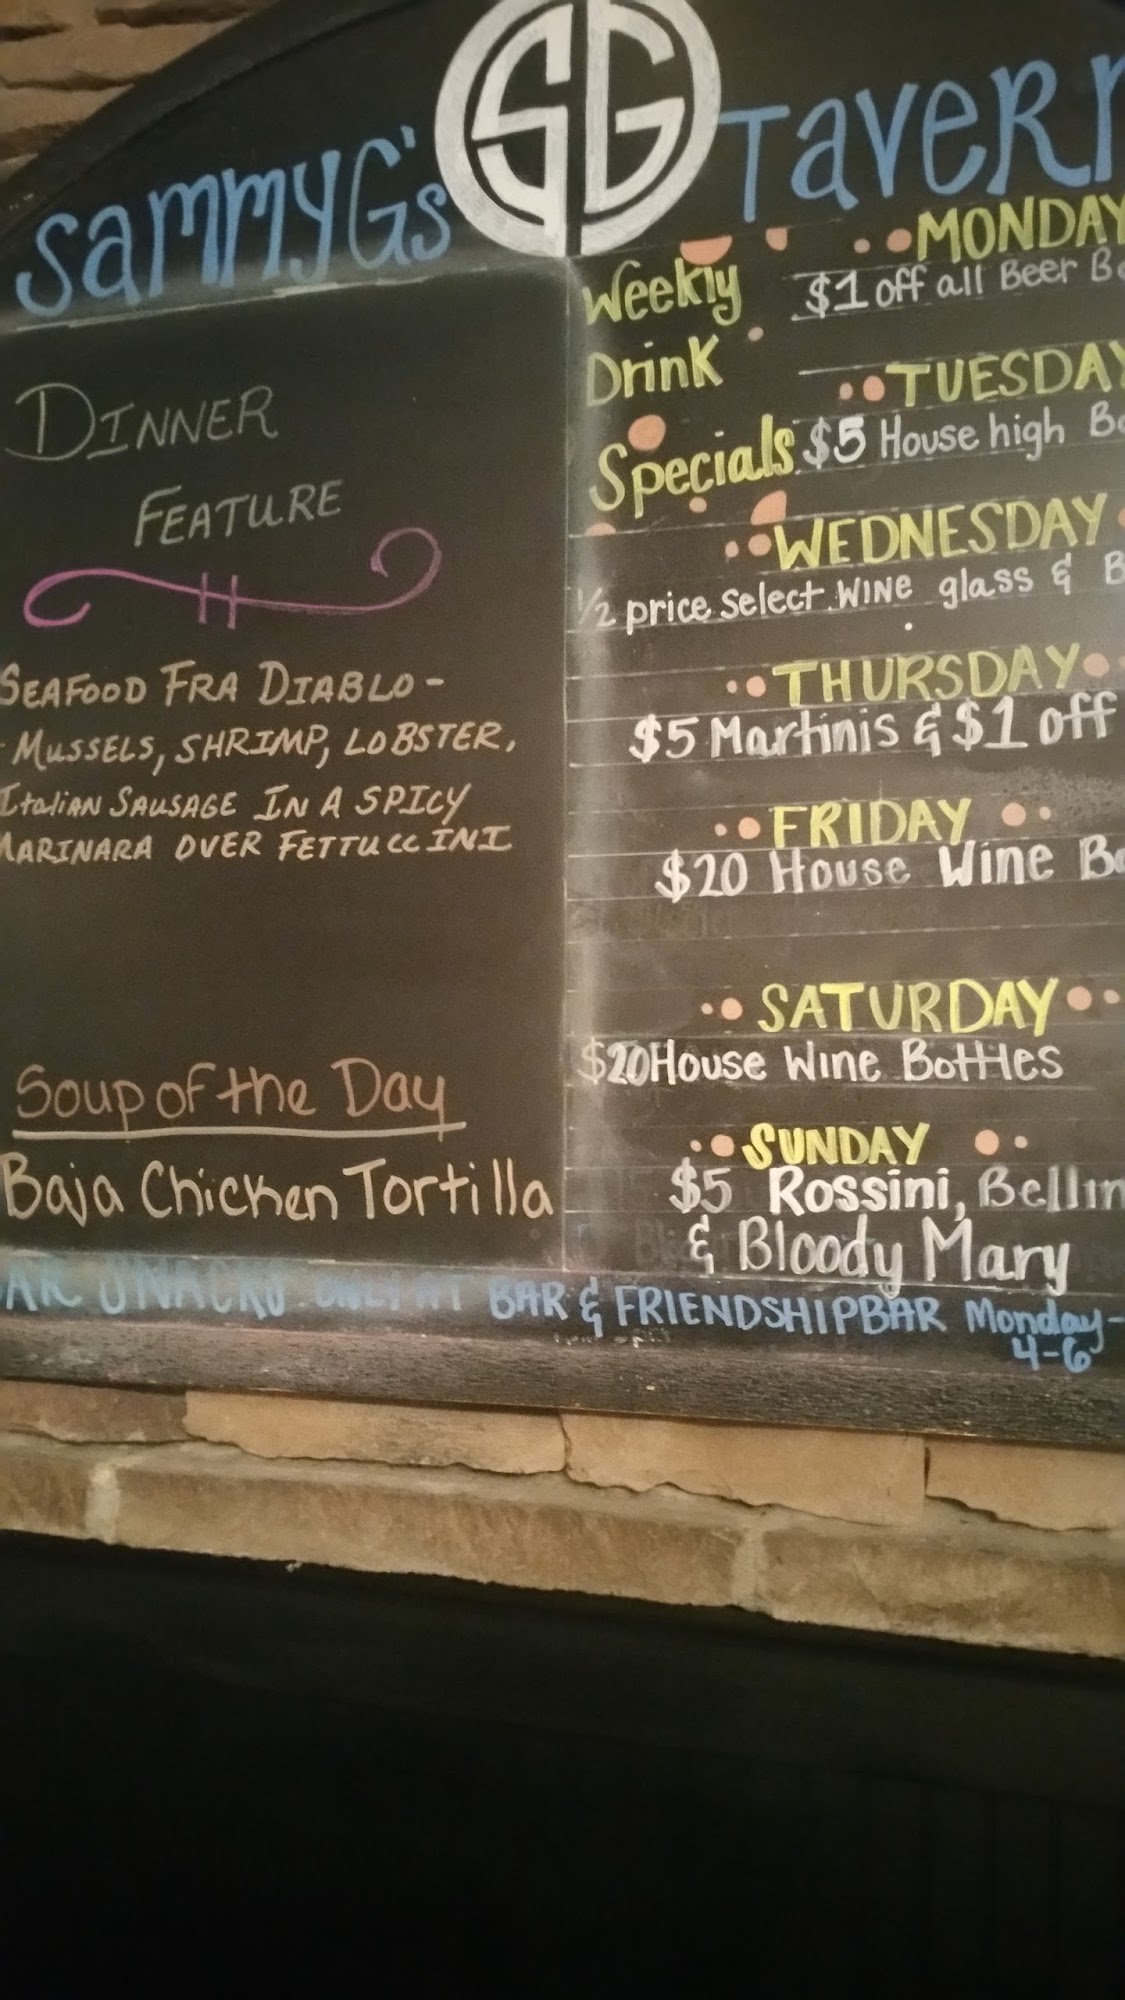 SammyG's SG Tavern
DINNER
FEATURE
SEAFOOD FRA DIABLO -
- MUSSELS, SHRIMP, LOBSTER,
ItaliAN SAUSAGE IN A SPICY
MARINARA OVER FETTUCCINI
Soup of the Day
Baja Chicken Tortilla
Weekly
Drink
Specials
MONDAY
$1 off all Beer
TUESDAY
$5 House high
WEDNESDAY
1/2 price select WINE glass &
THURSDAY
$5 Martinis & $1 off
FRIDAY
$20 House Wine
SATURDAY
$20 House Wine Bottles
SUNDAY
$5 Rossini, Bellin
& Bloody Mary
BAR SNACKS ONLY AT BAR & FRIENDSHIPBAR Monday-
4-6